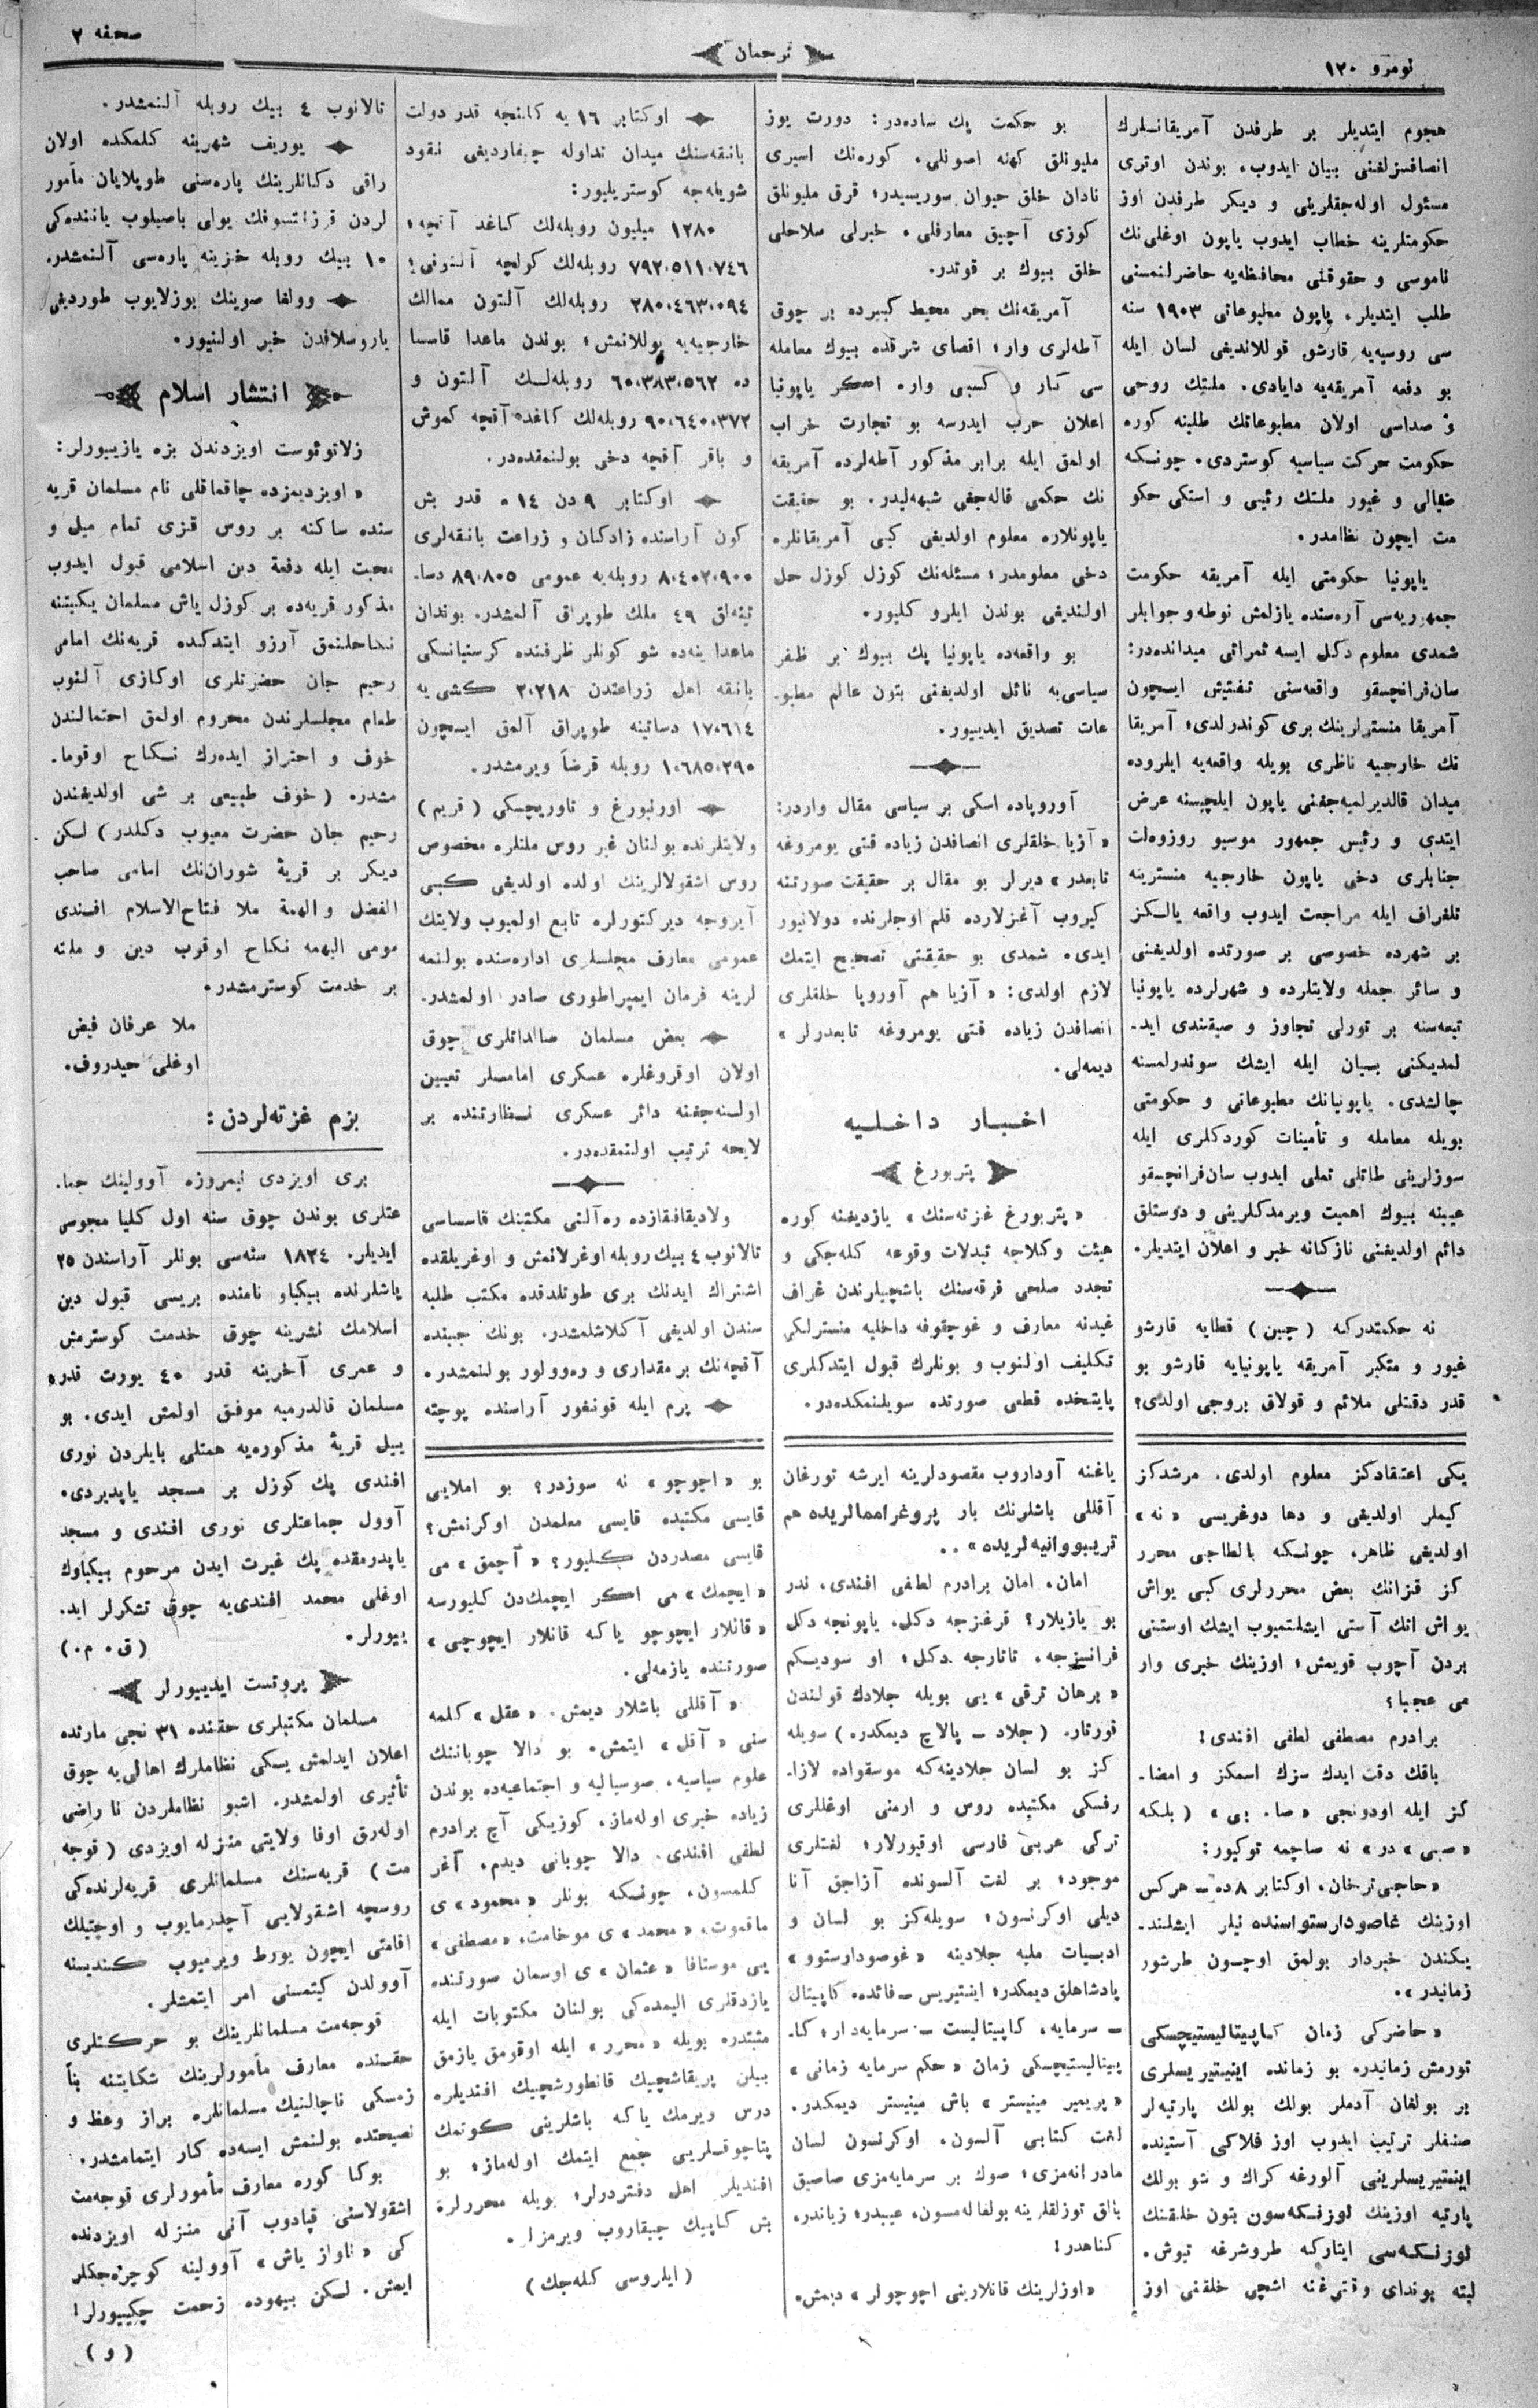 نومرو ١٢٠
ترجمان
صحفه ٢
هجوم ايتديلر بر طرفدن آمريقانلرك
انصافسزلغنى بيان ايدوب، بوندن اوترى
مسئول اوله‌جقلرينى و ديكر طرفدن اوز
حكومتلرينه خطاب ايدوب ياپون اوغلى‌نك
ناموسى و حقوقنى محافظه‌يه حاضرلنمسنى
طلب ايتديلر. ياپون مطبوعاتى ١٩٠٣ سنه
سى روسيه‌يه قارشو قوللانديغى لسان ايله
بو دفعه آمريقه‌يه دايادى. ملتك روحى
و صداسى اولان مطبوعاتك طلبنه كوره
حكومت حركت سياسيه كوستردى. چونكه
ضيالى و غيور ملتك رئيسى و استكى حكو
مت ايچون نظامدر.
ياپونيا حكومتى ايله آمريقه حكومت
جمهوريه‌سى آره‌سنده يازلمش نوطه و جوابلر
شمدى معلوم دكل ايسه ثمراتى ميدانده‌در:
سان‌فرانچسقو واقعه‌سنى تفتيش ايچون
آمريقا منسترلرينك برى كوندرلدى؛ آمريقا
نك خارجيه ناظرى بويله واقعه‌يه ايلروده
ميدان قالديرلميه‌جغنى ياپون ايلچيسنه عرض
ايتدى و رئيس جمهور موسيو روزوه‌لت
جنابلرى دخى ياپون خارجيه منسترينه
تلغراف ايله مراجعت ايدوب واقعه يالكز
بر شهرده خصوصى بر صورتده اولديغنى
و سائر جمله ولايتلرده و شهرلرده ياپونيا
تبعه‌سنه بر تورلى تجاوز و صيقندى ايد-
لمديكنى بيان ايله ايشك سوندرلمسنه
چالشدى. ياپونيانك مطبوعاتى و حكومتى
بويله معامله و تأمينات كوردكلرى ايله
سوزلرينى طاتلى تملى ايدوب سان‌فرانچسقو
عيبنه بيوك اهميت ويرمدكلرينى و دوستلق
دائم اولديغنى نازكانه خبر و اعلان ايتديلر.
نه حكمتدركه (چين) قطايه قارشو
غيور و متكبر آمريقه ياپونيايه قارشو بو
قدر دقتلى ملائم و قولاق بروجى اولدى؟
بو حكمت پك ساده‌در: دورت يوز
مليونلق كهنه اصولى، كوره‌نك اسيرى
نادان خلق حيوان سوريسيدر؛ قرق مليونلق
كوزى آچيق معارفلى، خبرلى سلاحلى
خلق بيوك بر قوتدر.
آمريقه‌نك بحر محيط كبيرده بر چوق
آطه‌لرى وار؛ اقصاى شرقده بيوك معامله
سى كار و كسبى وار. اكر ياپونيا
اعلان حرب ايدرسه بو تجارت خراب
اولمق ايله برابر مذكور آطه‌لرده آمريقه
نك حكمى قاله‌جغى شبهه‌ليدر. بو حقيقت
ياپونلاره معلوم اولديغى كبى آمريقانلره
دخى معلومدر؛ مسئله‌نك كوزل كوزل حل
اولنديغى بوندن ايلرو كليور.
بو واقعه‌ده ياپونيا پك بيوك بر ظفر
سياسى‌يه نائل اولديغنى بتون عالم مطبو-
عات تصديق ايدييور.
آوروپاده اسكى بر سياسى مقال واردر:
«آزيا خلقلرى انصافدن زياده قتى يومروغه
تابعدر» ديرلر بو مقال بر حقيقت صورتنه
كيروب آغزلارده قلم اوجلرنده دولانيور
ايدى. شمدى بو حقيقتى تصحيح ايتمك
لازم اولدى: «آزيا هم آوروپا خلقلرى
انصافدن زياده قتى يومروغه تابعدرلر»
ديمه‌لى.
اخبار داخليه
پتربورغ
«پتربورغ غزته‌سنك» يازديغنه كوره
هيئت وكلاجه تبدلات وقوعه كله‌جكى و
تجدد صلحى فرقه‌سنك باشچيلرندن غراف
غيدنه معارف و غوچقوفه داخليه منسترلكى
تكليف اولنوب و بونلرك قبول ايتدكلرى
پايتخده قطعى صورتده سويلنمكده‌در.
اوكتابر ١٦ يه كلنجه قدر دولت
بانقه‌سنك ميدان تداوله چيقارديغى نقود
شويله‌جه كوستريليور:
١٢٨٠ ميليون روبله‌لك كاغد آقچه؛
٧٩٢،٥١١،٧٤٦ روبله‌لك كولچه آلتونى؛
٢٨٠،٤٦٣،٠٩٤ روبله‌لك آلتون ممالك
خارجيه‌يه يوللانمش؛ بوندن ماعدا قاسسا
ده ٦٠،٣٨٣،٥٦٢ روبله‌لك آلتون و
٩٠،٦٤٠،٣٧٢ روبله‌لك كاغد آقچه كموش
و باقر آقچه دخى بولنمقده‌در.
اوكتابر ٩ دن ١٤ ه قدر بش
كون آراسنده زادكان و زراعت بانقه‌لرى
٨،٤٠٢،٩٠٠ روبله‌يه عمومى ٨٩،٨٠٥ دسا-
تينه‌لق ٤٩ ملك طوپراق آلمشدر. بوندان
ماعدا ينه‌ده شو كونلر ظرفنده كرستيانسكى
بانقه اهل زراعتدن ٢،٢١٨ كشى‌يه
١٧،٦١٤ دساتينه طوپراق آلمق ايچون
١،٦٨٥،٢٩٠ روبله قرضاً ويرمشدر.
اورنبورغ و تاوريچسكى (قريم)
ولايتلرنده بولنان غير روس ملتلره مخصوص
روس اشقولالرينك اولده اولديغى كبى
آيروجه ديركتورلره تابع اولميوب ولايتك
عمومى معارف مجلسلرى اداره‌سنده بولنمه
لرينه فرمان ايمپراطورى صادر اولمشدر.
بعض مسلمان صالداتلرى چوق
اولان اوقروغلره عسكرى اماملر تعيين
اولنه‌جغنه دائر عسكرى نظارتنده بر
لايحه ترتيب اولنمقده‌در.
ولاديقافقازده ره‌آلنى مكتبنك قاسساسى
تالانوب ٤ بيك روبله اوغرلانمش و اوغريلقده
اشتراك ايدنك برى طوتلدقده مكتب طلبه
سندن اولديغى آكلاشلمشدر. بونك جيبنده
آقچه‌نك بر مقدارى و ره‌وولور بولنمشدر.
پرم ايله قونغور آراسنده پوچته
تالانوب ٤ بيك روبله آلنمشدر.
يوريف شهرينه كلمكده اولان
راقى دكانلرينك پاره‌سنى طوپلايان مأمور
لردن يولى باصيلوب ياننده‌كى
١٠ بيك روبله خزينه پاره‌سى آلنمشدر.
وولغا صوينك بوزلايوب طورديغى
ياروسلاقدن خبر اولنيور.
انتشار اسلام
زلاتوئوست اويزدندن بزه يازييورلر:
«اويزديمزده چاقماقلى نام مسلمان قريه
سنده ساكنه بر روس قزى تمام ميل و
محبت ايله دفعة دين اسلامى قبول ايدوب
مذكور قريه‌ده بر كوزل ياش مسلمان يكيتنه
نكاحلنمق آرزو ايتدكده قريه‌نك امامى
رحيم جان حضرتلرى اوكازى آلنوب
طعام مجلسلرندن محروم اولمق احتمالندن
خوف و احتراز ايده‌رك نكاح اوقوما-
مشدر. (خوف طبيعى بر شى اولديغندن
رحيم جان حضرت معيوب دكلدر) لكن
ديكر بر قريهٔ شوران‌نك امامى صاحب
الفضل والهمة ملا فتاح‌الاسلام افندى
مومى اليهمه نكاح اوقوب دين و ملته
بر خدمت كوسترمشدر.
ملا عرفان فيض
اوغلى حيدروف.
بزم غزته‌لردن:
برى اويزدى نيمروزه آوولينك جما-
عتلرى بوندن چوق سنه اول كليا مجوسى
ايديلر. ١٨٢٤ سنه‌سى بونلر آراسندن ٢٥
ياشلرنده بيكباو نامنده بريسى قبول دين
اسلامك نشرينه چوق خدمت كوسترمش
و عمرى آخرينه قدر ٤٠ يورت قدر
مسلمان قالدرميه موفق اولمش ايدى. بو
ييل قريهٔ مذكوره‌يه همتلى بايلردن نورى
افندى پك كوزل بر مسجد ياپديردى.
آوول جماعتلرى نورى افندى و مسجد
ياپدرمقده پك غيرت ايدن مرحوم بيكباوك
اوغلى محمد افندى‌يه چوق تشكرلر ايد-
ييورلر.
(ق. م.)
پروتست ايدييورلر
مسلمان مكتبلرى حقنده ٣١ نجى مارتده
اعلان ايدلمش يكى نظاملرك اهالى‌يه چوق
تأثيرى اولمشدر. اشبو نظاملردن نا راضى
اوله‌رق اوفا ولايتى منزله اويزدى (قوجه
مت) قريه‌سنك مسلمانلرى قريه‌لرنده‌كى
روسچه اشقولايى آچدرمايوب و اوچتيلك
اقامتى ايچون يورط ويرميوب كنديسنه
آوولدن كيتمسنى امر ايتمشلر.
قوجه‌مت مسلمانلرينك بو حركتلرى
حقنده معارف مأمورلرينك شكايتنه بنأ
زمسكى ناچالنيك مسلمانلره براز وعظ و
نصيحتده بولنمش ايسه‌ده كار ايتمامشدر.
بوكا كوره معارف مأمورلرى قوجه‌مت
اشقولاسنى قپادوب آنى منزله اويزدنده
كى «ناواز ياش» آوولينه كوچره‌جكلر
ايمش. لكن بيهوده زحمت چكييورلر!
(و)
يكى اعتقادكز معلوم اولدى. مرشدكز
كيملر اولديغى و دها دوغريسى «نه»
اولديغى ظاهر، چونكه بالطاجى محرر
كز قزانك بعض محررلرى كبى يواش
يواش انك آستى ايشلتميوب ايشك اوستنى
بردن آچوب قويمش؛ اوزينك خبرى وار
مى عجبا؟
برادرم مصطفى لطفى افندى!
باقك دقت ايدك سزك اسمكز و امضا-
كز ايله اودونجى «صا. بى» (بلكه
«صبى» در» نه صاچمه توكيور:
«حاجى‌ترخان، اوكتابر ٨ ده — هركس
اوزينك غاصودارستواسنده نيلر ايشلند-
يكندن خبردار بولمق اوچون طرشور
زمانيدر».
«حاضركى زمان كاپيتاليستيچسكى
تورمش زمانيدر. بو زمانده اينتيريسلرى
بر بولغان آدملر بولك بولك پارتيه‌لر
صنفلر ترتيب ايدوب اوز فلاكى آستينده
اينتيريسلرينى آلورغه كراك و شو بولك
پارتيه اوزينك لوزنكه‌سون بتون خلقنك
لوزنكه‌سى ايتاركه طروشرغه تيوش.
ليته بونداى وقترغنه اشچى خلقنى اوز
ياغنه آوداروب مقصودلرينه ايرشه تورغان
آقللى باشلرنك بار پروغراممالريده هم
تريبووانيه‌لريده»..
امان، امان برادرم لطفى افندى، ندر
بو يازيلار؟ قرغزجه دكل، ياپونجه دكل
فرانسزجه، تاتارجه دكل؛ او سوديكم
«برهان ترقى» يى بويله جلادك قولندن
قورتار. (جلاد — پالاچ ديمكدر) سويله
كز بو لسان جلادينه‌كه موسقواده لازا-
رفسكى مكتبده روس و ارمنى اوغللرى
تركى عربى فارسى اوقيورلار؛ لغتلرى
موجود؛ بر لغت آلسونده آزاجق آنا
ديلى اوكرنسون؛ سويله‌كز بو لسان و
ادبيات مليه جلادينه «غوصودارستوو»
پادشاهلق ديمكدر؛ اينتيريس — فائده، كاپيتال
— سرمايه، كاپيتاليست — سرمايه‌دار؛ كا-
پيتاليستيچسكى زمان «حكم سرمايه زمانى»
«پريمير مينيستر» باش مينيستر ديمكدر.
لغت كتابى آلسون، اوكرنسون لسان
مادرانه‌مزى؛ صوك بر سرمايه‌مزى صاصيق
بالق توزلقلرينه بولغاله‌مسون، عيبدر؛ زياندر،
كناهدر!
«اوزلرينك قانلارينى اچوچولر» ديمش.
بو «اچوچو» نه سوزدر؟ بو املايى
قايسى مكتبده قايسى معلمدن اوكرنمش؟
قايسى مصدردن كليور؟ «آچمق» مى
«ايچمك» مى اكر ايچمك‌دن كليورسه
«قانلار ايچوچو ياكه قانلار ايچوچى»
صورتنده يازمه‌لى.
«آقللى باشلار ديمش. «عقل» كلمه
سنى «آقل» ايتمش. بو دالا چوباننك
علوم سياسيه، صوسياليه و اجتماعيه‌ده بوندن
زياده خبرى اوله‌ماز. كوزيكى آچ برادرم
لطفى افندى. دالا چوبانى ديدم. آغر
كلمسون، چونكه بونلر «محمود» ى
ماقموت، «محمد» ى موخامت، «مصطفى»
يى موستافا «عثمان» ى اوسمان صورتنده
يازدقلرى اليمده‌كى بولنان مكتوبات ايله
مثبتدره بويله «محرر» ايله اوقومق يازمق
بيلن پريقاشچيك قانطورشچيك افنديلره
درس ويرمك ياكه باشلرينى كوتمك
پتاچوقلريى جمع ايتمك اوله‌ماز؛ بو
افنديلر اهل دفتردرلر؛ بويله محررلره
بش كاپيك چيقاروب ويرمزلر.
(ايلروسى كله‌جك)